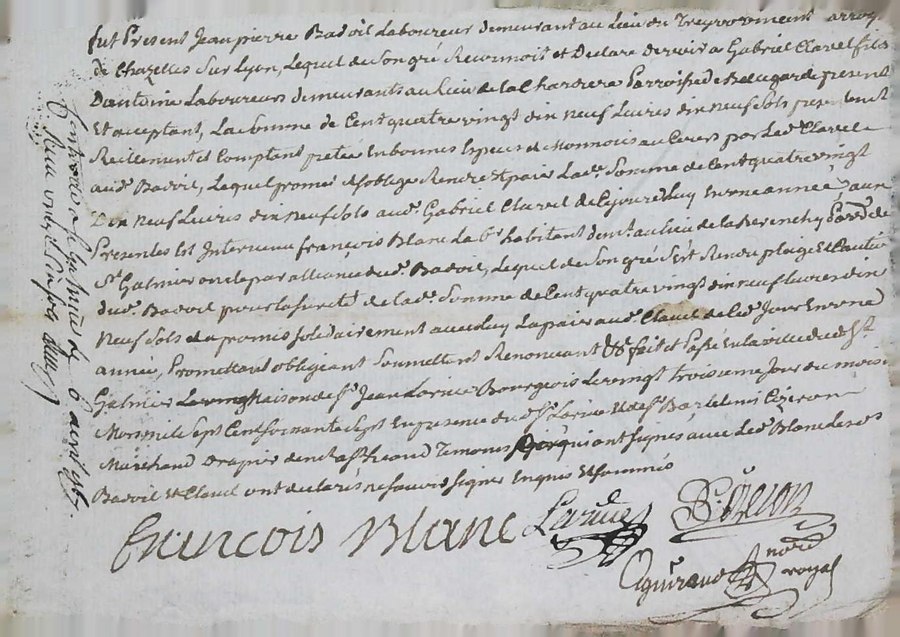 fut Present Jean pierre Badoil Laboureur demeurant au Lieu du
de Chazelles Sur Lyon, Lequel de Son gré Reconnoit et Declare devoir a Gabriel Clavel fils
D'antoine Laboureurs demeurants au lieu de la Parroisse de Bellegarde present
Et acceptant, La Somme de Cent quatre vingt dix neuf Livres dix neuf Sols
Reellement et Comptant pretée En bonnes Especes de Monnois au Cours par Led. Clavel
aud. Badoil, Lequel promet Rendre & paier Lad. Somme de Cent quatre vingt
Dix neuf Livres dix neuf Sols aud. Gabriel Clavel de Ce jourdhuy En une année, aux
Presentes Est Intervenu françois Blanc Lab. habitant au lieu de la parr. de
St. Galmier oncle par alliance dud. Badoil, Lequel de Son gré S'est Rendu plaige Et Caution
dud. Badoil pour la sureté de lad. Somme de Cent quatre vingt dix neuf livres dix
Neuf Sols et a promis solidairement avec luy La paier aud. Clavel de Ce Jour En une
année, Promettant obligeant Soumettant Renonceant &c fait et Passé En la ville dud. St.
Galmier Maison de Sr. Jean Bourgeois Le vingt troisieme jour du mois de
Mars mil Sept Cent soixante Sept En presence dud. Sr. Et de Sr. Bartelemi
Marchand Drapier Temoins qui ont signés avec Led. Blanc Les
Badoil Et Clavel ont declarés ne savoir signer Enquis Et sommés
françois Blanc
Aguiraud nore royal
Controlé a St. Galmier Le 6 avril 1767.
Recu vingt Six sols